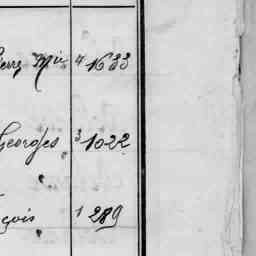 Pierre Mie 4 1633
Georges 3 1022
çois 1 289